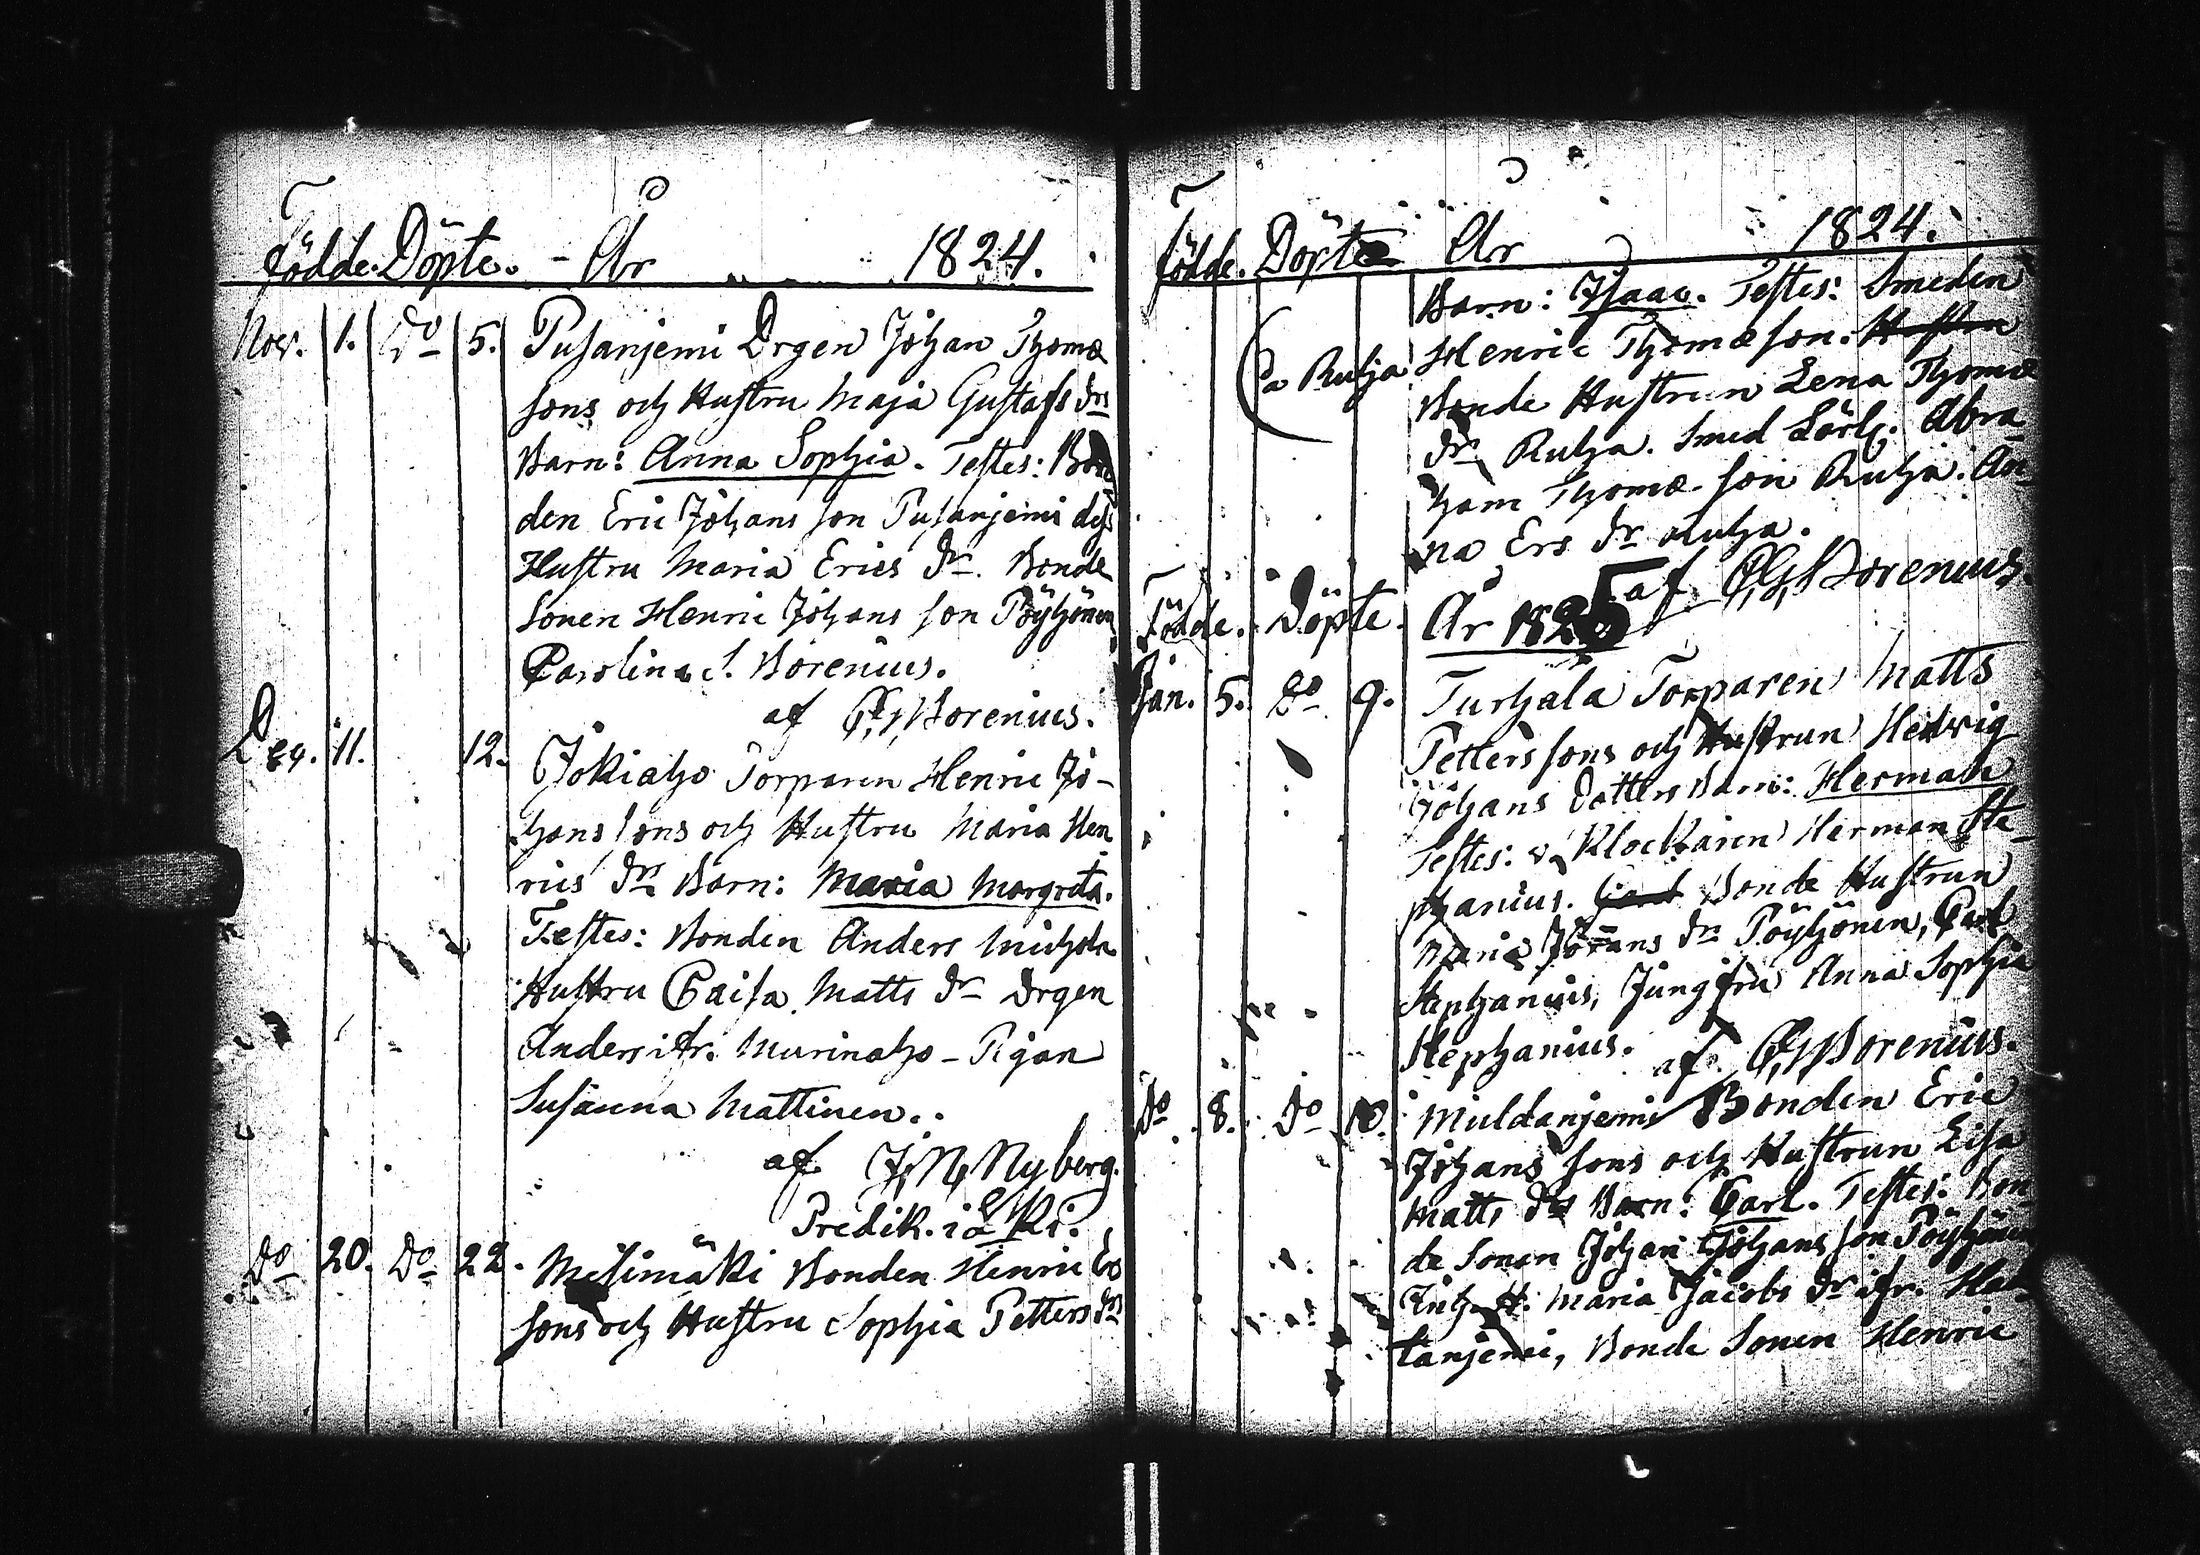 Födde. Döpte. - År 1824.
Nov. 1. Do 5. Pusanjemi Drgen Johan Thomæ
sons och Hustru Maja Gustafs drs
Barn: Anna Sophia. Testes: Bon
den Eric Johans son Pusanjemi dess
Hustru Maria Erics dr. Bonde
Sonen Henric Johans son Pöyhönen
Carolina S. Borenius.
af C,G,Borenius.
Dec. 11. 12. Jokiaho Torparen Henric Jo-
hans sons och Hustru Maria Hen
rics drs Barn: Maria Margreta.
Testes: Bonden Anders
Hustru Caisa Matts dr Drgen
Anders ifr. Murinaho - Pigan
Susanna Mattinen.
af J,N,Nyberg.
Predik. i
Do 20. Do 22. Mesimäki Bonden Henric Ers
sons och Hustru Sophia Petters drs
Födde. Döpte År 1824.
Barn: Isaac. Testes: Smeden
Ruhja Henric Thomæ son. Hustru
Bonde Hustrun Lena Thomæ
dr Ruhja. Smed Lärl. Abra
ham Thomæ son Ruhja. An
na Ers dr Ruhja.
af C,G,Borenius.
Födde. Döpte. År 1825
Jan. 5. Do 9. Turhala Torparen Matts
Petters sons och Hustrun Hedvig
Johans Dotters Barn: Herman
Testes: v. Klockaren Herman Ste
phanius. Bonde Hustrun
Maria Johans dr Pöyhönen, Carl
Stephanius, Jungfru Anna Sophia
Stephanius. af C,G,Borenius.
Do 8. Do 10. Muldanjemi Bonden Eric
Johans sons och Hustrun Lisa
Matts drs Barn: Carl. Testes: Bon
de Sonen Johan Johans son Pöyhönen
Maria Jacobs dr ifr.
tanjemi, Bonde Sonen Henric